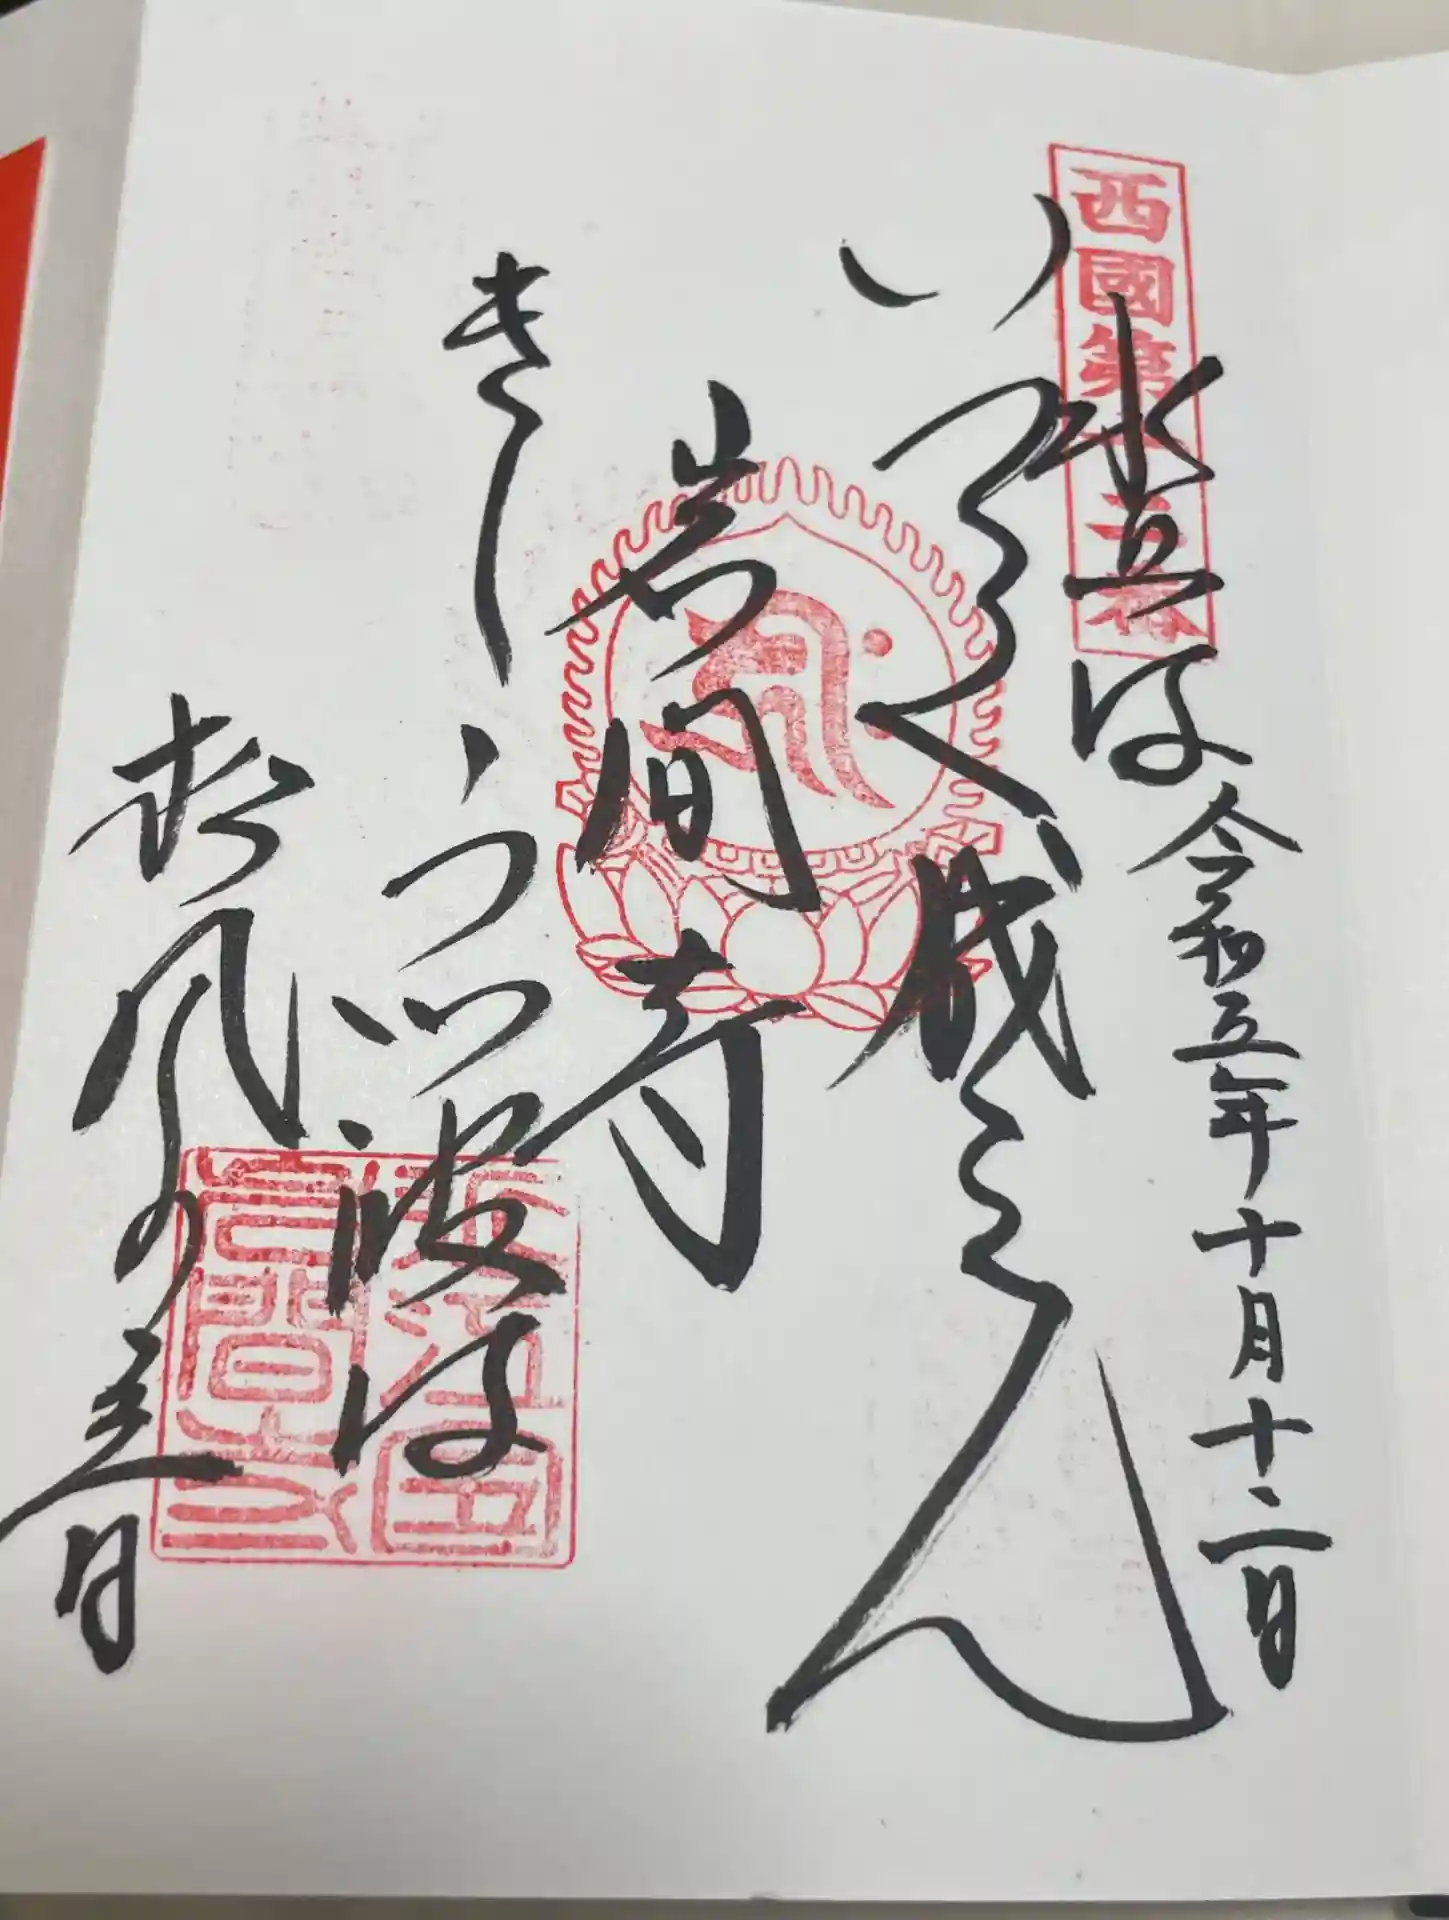 西國第十二番
水上は
令和五年十月十二日
いつく成らん
岩間寺
きしうつ波は
松風の音